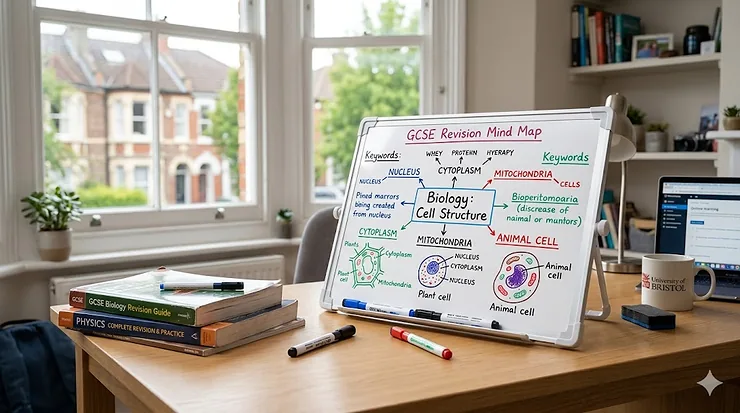 GCSE Revision Mind Map
Keywords:
WHEY PROTEHN HYERAPY
Keywords
NUCLEUS
CYTOPLASM
MITOCHONDRIA
NUCLEUS
CELLS
Pined marrors
being created
from nucleus
Biology:
Cell Structure
Bioperitomoaria
(discrease of
naimal or muntors)
CYTOPLASM
MITOCHONDRIA
ANIMAL CELL
Plants
Cytoplasm
Plant cell
Mitochondria
NUCLEUS
CYTOPLASM
NUCLEUS
Plant cell
Animal
cell
Animal cell
GCSE Biology Revision Guide
PHYSICS COMPLETE REVISION & PRACTICE
University of
BRISTOL